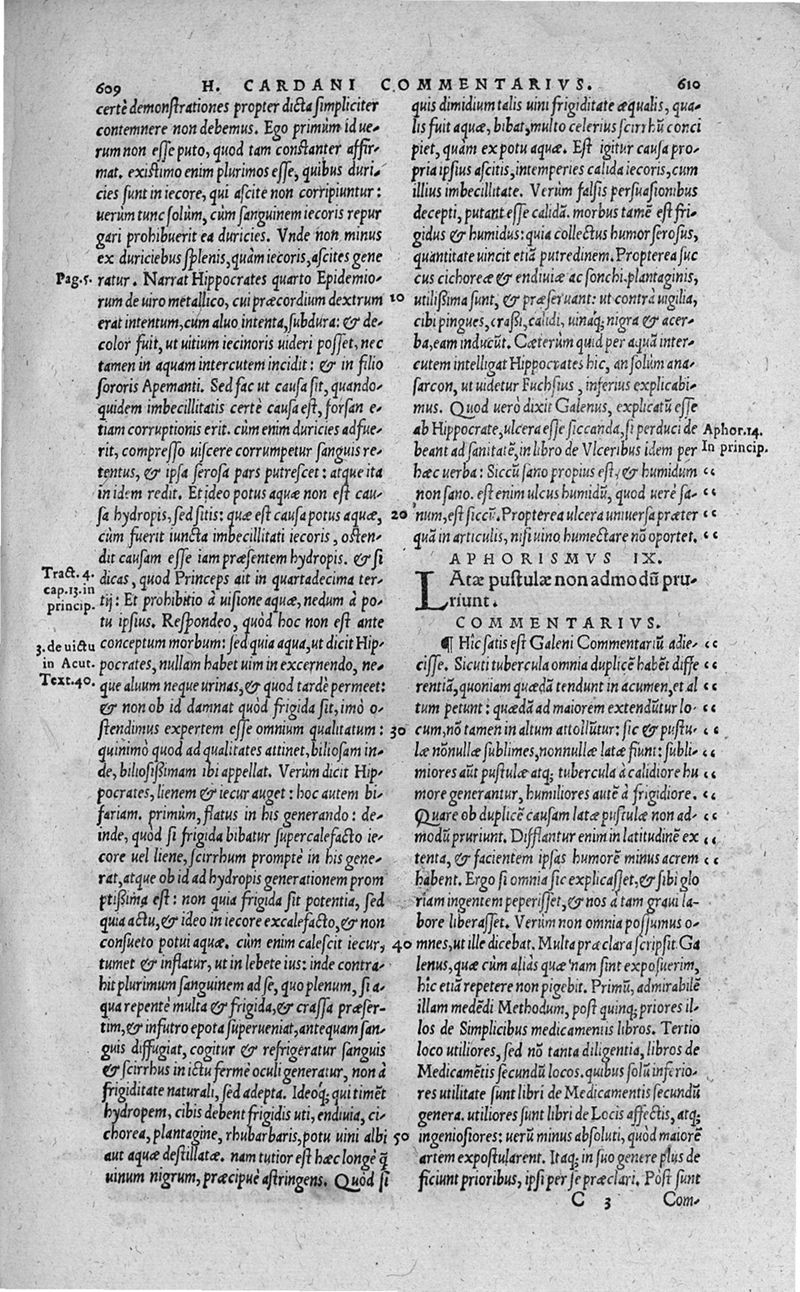 609 H. CARDANI COMMENTARIVS. 610
certè demonstrationes propter dicta simpliciter
contemnere non debemus. Ego primùm id ue-
rum non esse puto, quod tam constanter affir-
mat. existimo enim plurimos esse, quibus duri-
cies sunt in iecore, qui ascite non corripiuntur:
uerùm tunc solùm, cùm sanguinem iecoris repur
gari prohibuerit ea duricies. Vnde non minus
ex duriciebus splenis, quàm iecoris, ascites gene
Pag. 5. ratur. Narrat Hippocrates quarto Epidemio-
rum de uiro metallico, cui præcordium dextrum 10
erat intentum, cum aluo intenta, subdura: & de-
color fuit, ut uitium iecinoris uideri posset, nec
tamen in aquam intercutem incidit: & in filio
sororis Apemanti. Sed fac ut causa sit, quando-
quidem imbecillitatis certè causa est, forsan e-
tiam corruptionis erit. cùm enim duricies adfue-
rit, compresso uiscere corrumpetur sanguis re-
tentus, & ipsa serosa pars putrescet: atque ita
in idem redit. Et ideo potus aquæ non est cau-
sa hydropis, sed sitis: quæ est causa potus aquæ, 20
cùm fuerit iuncta imbecillitati iecoris, osten-
dit causam esse iam præsentem hydropis. & si
Tract. 4. cap. 13. in princip. dicas, quod Princeps ait in quartadecima ter-
tij: Et prohibitio à uisione aquæ, nedum à po-
tu ipsius. Respondeo, quòd hoc non est ante
3. de uictu in Acut. Text. 40. conceptum morbum: sed quia aqua, ut dicit Hip-
pocrates, nullam habet uim in excernendo, ne-
que aluum neque urinas, & quod tardè permeet:
& non ob id damnat quòd frigida sit, imò o-
stendimus expertem esse omnium qualitatum: 30
quinimò quod ad qualitates attinet, biliosam in-
de, biliosissimam ibi appellat. Verùm dicit Hip-
pocrates, lienem & iecur auget: hoc autem bi-
fariam. primùm, flatus in his generando: de-
inde, quòd si frigida bibatur supercalefacto ie-
core uel liene, scirrhum promptè in his gene-
rat, atque ob id ad hydropis generationem prom
ptissima est: non quia frigida sit potentia, sed
quia actu, & ideo in iecore excalefacto, & non
consueto potui aquæ. cùm enim calescit iecur, 40
tumet & inflatur, ut in lebete ius: inde contra-
hit plurimum sanguinem ad se, quo plenum, si a-
qua repentè multa & frigida, & crassa præser-
tim, & infutro epota superueniat, antequam san-
guis diffugiat, cogitur & refrigeratur sanguis
& scirrhus in ictu fermè oculi generatur, non à
frigiditate naturali, sed adepta. Ideoq́; qui timēt
hydropem, cibis debent frigidis uti, endiuia, ci-
chorea, plantagine, rhubarbaris, potu uini albi 50
aut aquæ destillatæ. nam tutior est hæc longè q̃
uinum nigrum, præcipuè astringens. Quòd si
quis dimidium talis uini frigiditate æqualis, qua-
lis fuit aquæ, bibat, multo celerius scirrhū conci
piet, quàm ex potu aquæ. Est igitur causa pro-
pria ipsius ascitis, intemperies calida iecoris, cum
illius imbecillitate. Verùm falsis persuasionibus
decepti, putant esse calidā. morbus tamē est fri-
gidus & humidus: quia collectus humor serosus,
quantitate uincit etiā putredinem. Propterea suc
cus cichoreæ & endiuiæ ac sonchi. plantaginis,
utilissima sunt, & præseruant: ut contrà uigilia,
cibi pingues, crassi, calidi, uinaq́; nigra & acer-
ba, eam inducūt. Cæterùm quid per aquā inter-
cutem intelligat Hippocrates hic, an solùm ana-
sarcon, ut uidetur Fuchsius, inferius explicabi-
mus. Quod uerò dixit Galenus, explicatū esse
ab Hippocrate, ulcera esse siccanda, si perduci de Aphor. 14.
beant ad sanitatē, in libro de Vlceribus idem per In princip.
hæc uerba: Siccū sano propius est, & humidum “
non sano. est enim ulcus humidū, quod uerè sa- “
num, est siccū. Propterea ulcera uniuersa præter “
quā in articulis, nisi uino humectare nō oportet. “
APHORISMVS IX.
LAtæ pustulæ non admodū pru-
riunt.
COMMENTARIVS.
¶ Hîc satis est Galeni Commentariū adie- “
cisse. Sicuti tubercula omnia duplicē habēt diffe “
rentiā, quoniam quædā tendunt in acumen, et al “
tum petunt: quædā ad maiorem extendūtur lo- “
cum, nō tamen in altum attollūtur: sic & pustu- “
læ nōnullæ sublimes, nonnullæ latæ fiunt: subli- “
miores aūt pustulæ atq́; tubercula à calidiore hu “
more generantur, humiliores autē à frigidiore. “
Quare ob duplicē causam latæ pustulæ non ad- “
modū pruriunt. Difflantur enim in latitudinē ex “
tenta, & facientem ipsas humorē minus acrem “
habent. Ergo si omnia sic explicasset, & sibi glo
riam ingentem peperisset, & nos à tam graui la-
bore liberasset. Verùm non omnia possumus o-
mnes, ut ille dicebat. Multa præclara scripsit Ga
lenus, quæ cùm aliàs quæ nam sint exposuerim,
hîc etiā repetere non pigebit. Primū, admirabilē
illam medēdi Methodum, post quinq́; priores il-
los de Simplicibus medicamentis libros. Tertio
loco utiliores, sed nō tanta diligentia, libros de
Medicamētis secundū locos. quibus solū inferio-
res utilitate sunt libri de Medicamentis secundū
genera. utiliores sunt libri de Locis affectis, atq́;
ingeniosiores: uerū minus absoluti, quòd maiorē
artem expostularent. Itaq́; in suo genere plus de
ficiunt prioribus, ipsi per se præclari. Pòst sunt
C 3 Com-